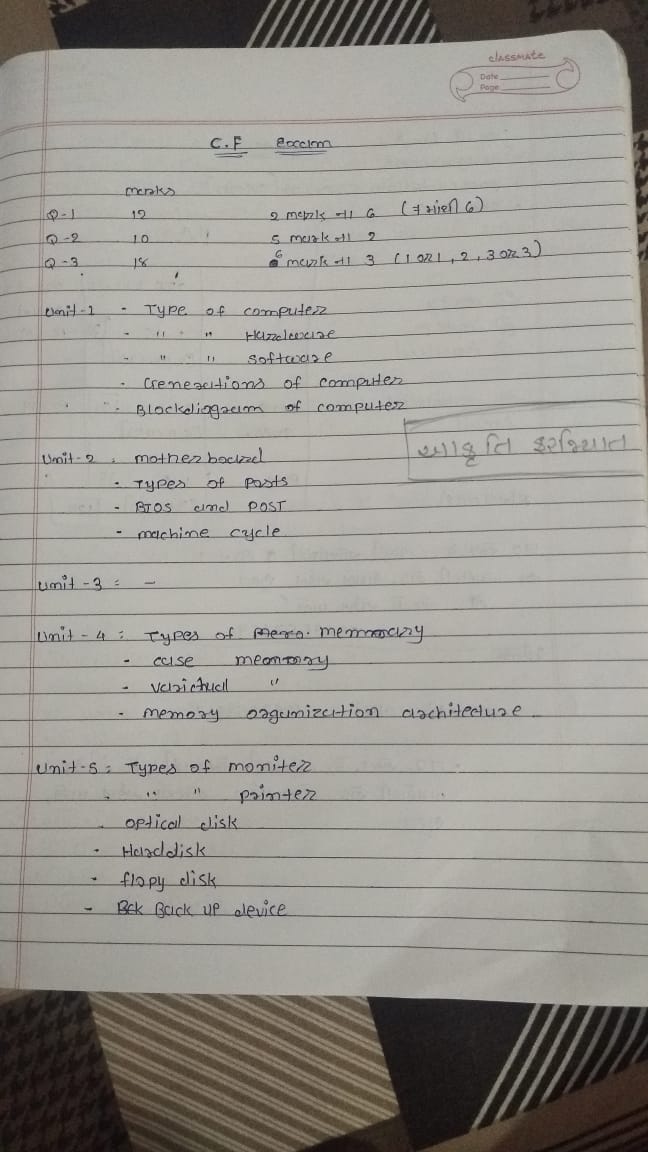 classmate
Date
Page
C.F Exam
marks
Q-1 12 2 mark ના 6 (7 માંથી 6)
Q-2 10 5 mark ના 2
Q-3 18 6 mark ના 3 (1 or 1, 2, 3 or 3)
Unit-1 - Type of computer
- " " Hardware
- " " software
- Generations of computer
- Blockdiagram of computer
આકૃતિ ફરજિયાત
Unit-2 . motherboard
- Types of posts
- BIOS and POST
- machine cycle
Unit-3 = -
Unit-4 : Types of memory
- case memory
- varictual "
- memory organization architecture
Unit-5 : Types of moniter
. " " printer
. optical disk
- Harddisk
- flopy disk
- Back up device